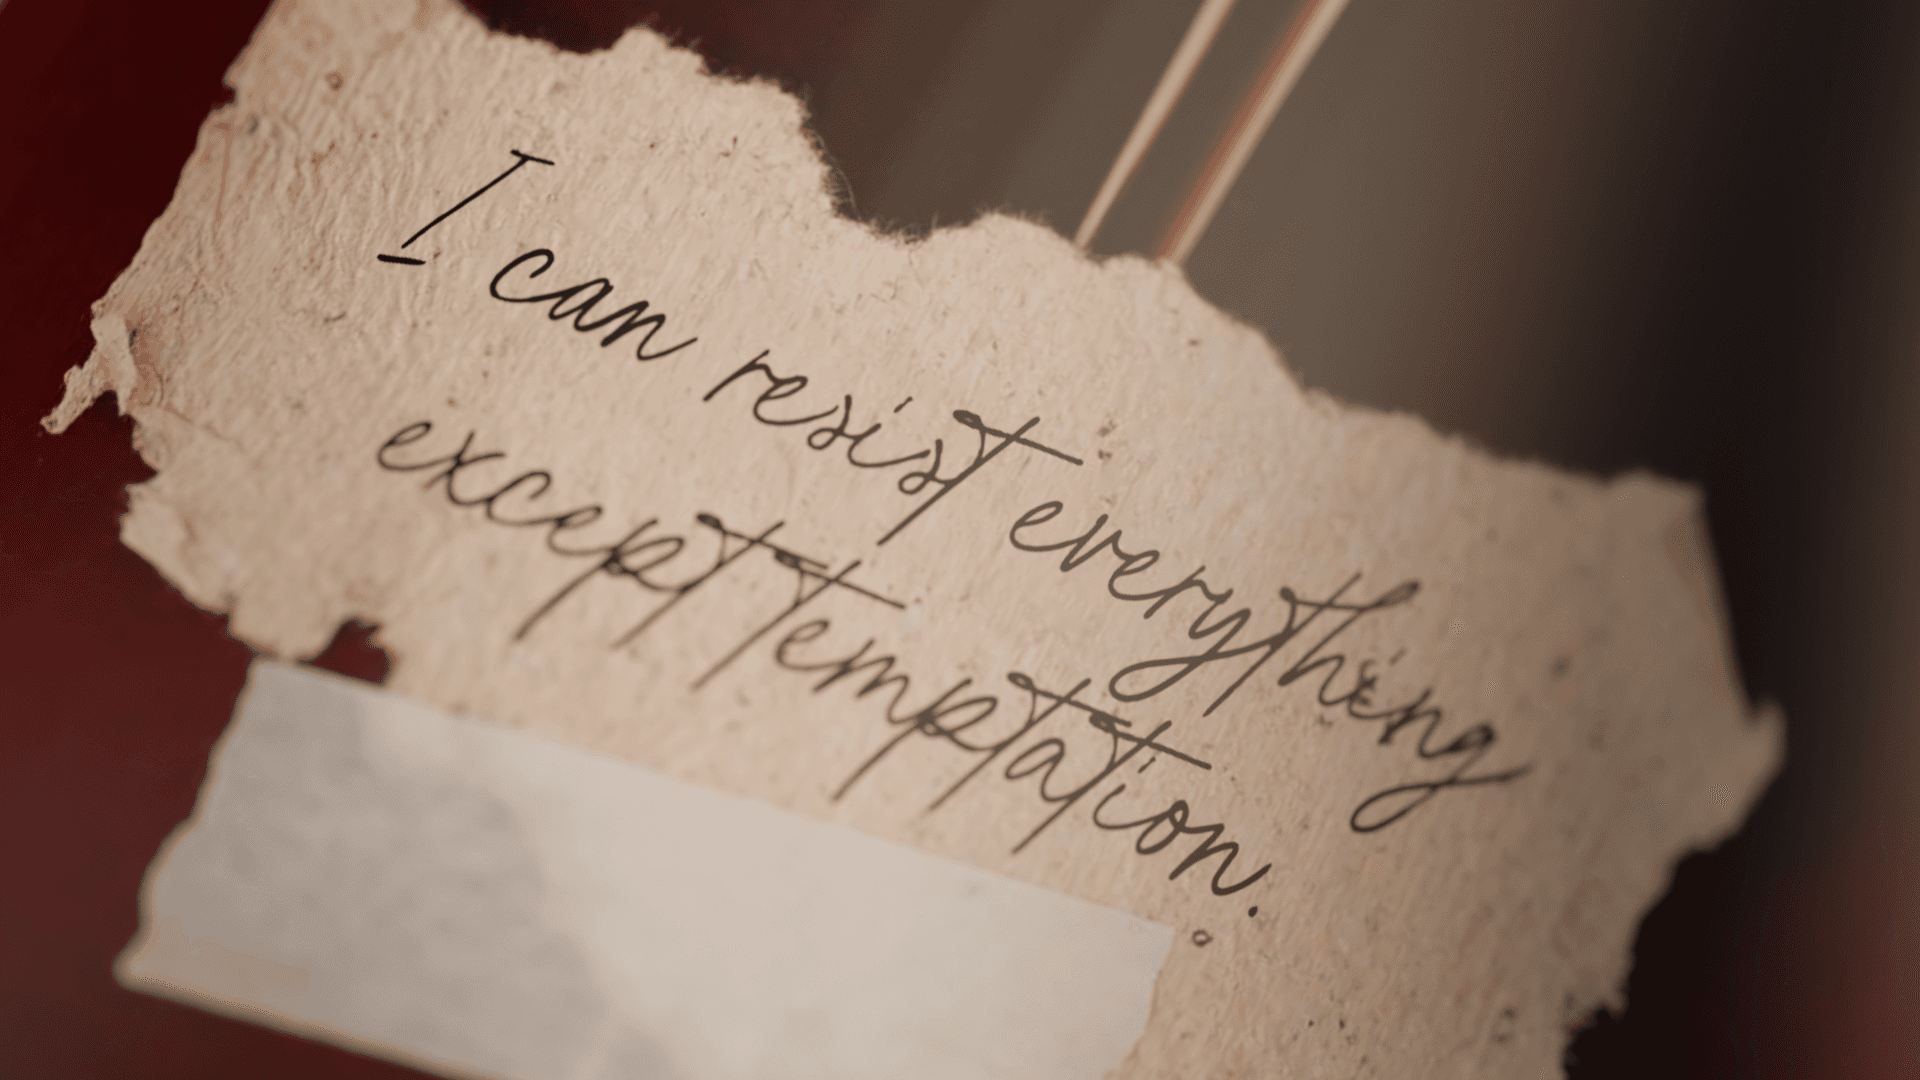 I can resist everything
except temptation.